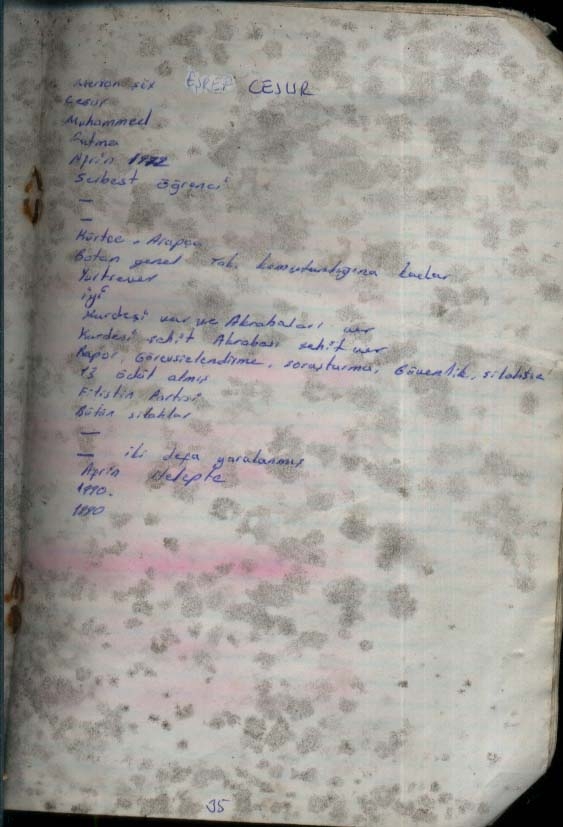 Mervan şêx EŞREF CESUR
Cesur
Muhammed
Fatma
Afrin 1972
Serbest Öğrenci
—
—
Kürtçe, Arapça
Bütün genel Tak. komutanlığına kadar
Yurtsever
iyi
Kardeşi var ve Akrabaları var
Kardeşi şehit Akrabası şehit var
Rapor, Görevsizlendirme, soruşturma, Güvenlik, silahsız
13 ödül almış
Filistin Partisi
Bütün silahlar
—
— iki defa yaralanmış
Afrin Halepte
1990.
1990
35